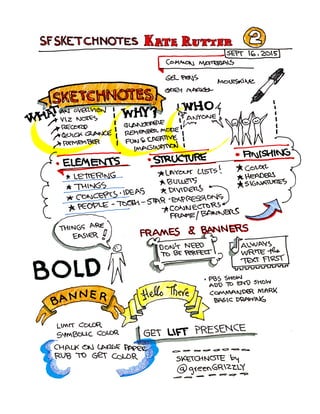 SFSKETCHNOTES KATE RUTTER 2
SEPT 16, 2015
COMMON MATERIALS
GEL PENS MOLESKINE
SKETCHNOTES
WHAT WHY? WHO
VIZ NOTES
RECORD
QUICK GLANCE
REMEMBER
REMEMBER MORE
FUN & CREATIVE
IMAGINATION
ANYONE
• ELEMENTS • STRUCTURE • FINISHING
★ LETTERING
★ THINGS
★ CONCEPTS • IDEAS
★ PEOPLE - TOOTH - STAR • EXPRESSIONS
★ LAYOUT LISTS!
★ BULLETS
★ DIVIDERS
★ CONNECTORS
FRAME/BANNERS
★ COLOR
★ HEADERS
★ SIGNATURES
THINGS ARE
EASIER!
FRAMES & BANNERS
DON'T NEED
TO BE PERFECT
ALWAYS
WRITE the
TEXT FIRST
BOLD
BANNER
Hello There
• PBS SHOW
ADD TO END SHOW
COMMANDER MARK
BASIC DRAWING
LIMIT COLOR
SYMBOLIC COLOR
CHALK ON LARGE PAPER
RUB TO GET COLOR
GET LIFT PRESENCE
SKETCHNOTE by
@greenGRIZZLY